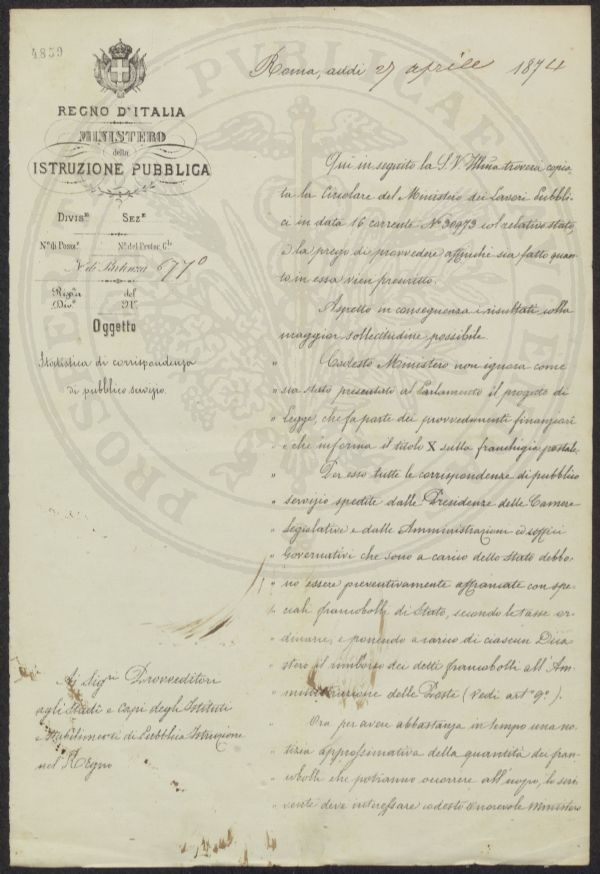 4859
Roma, addì 27 aprile 1874
REGNO D'ITALIA
MINISTERO
della
ISTRUZIONE PUBBLICA
Divisne Sezne
No. di Posizne. No. del Protoc. Gle
No di Partenza 6770
Rispta al
Div.ne No.
Oggetto
Statistica di corrispondenza
di pubblico servizio.
Qui in seguito la S.V. Illma troverà copia
ta la Circolare del Ministero dei Lavori Pubbli
ci in data 16 corrente No 30973 col relativo stato,
e la prego di provvedere affinchè sia fatto quan
to in essa vien prescritto.
Aspetto in conseguenza i risultati colla
maggior sollecitudine possibile
" Codesto Ministero non ignora come
" sia stato presentato al Parlamento il progetto di
" Legge, che fa parte dei provvedimenti finanziari
" e che informa il titolo X sulla franchigia postale.
" Per esso tutte le corrispondenze di pubblico
" servizio spedite dalle Presidenze delle Camere
" Legislative e dalle Amministrazioni ed uffici
" Governativi che sono a carico dello Stato debbo
" no essere preventivamente affrancate con spe
" ciali francobolli di Stato, secondo le tasse or
" dinarie, e ponendo a carico di ciascun Dica
" stero il rimborso dei detti francobolli all'Am
" ministrazione delle Poste (vedi art. 9o.).
" Ora per avere abbastanza in tempo una no
" tizia approssimativa della quantità dei fran
" cobolli che potranno occorrere all'uopo, lo scri
" vente deve interessare codesto onorevole Ministero
Ai Sigri Provveditori
agli Studi e Capi degli Istituti
e Stabilimenti di Pubblica Istruzione
nel Regno